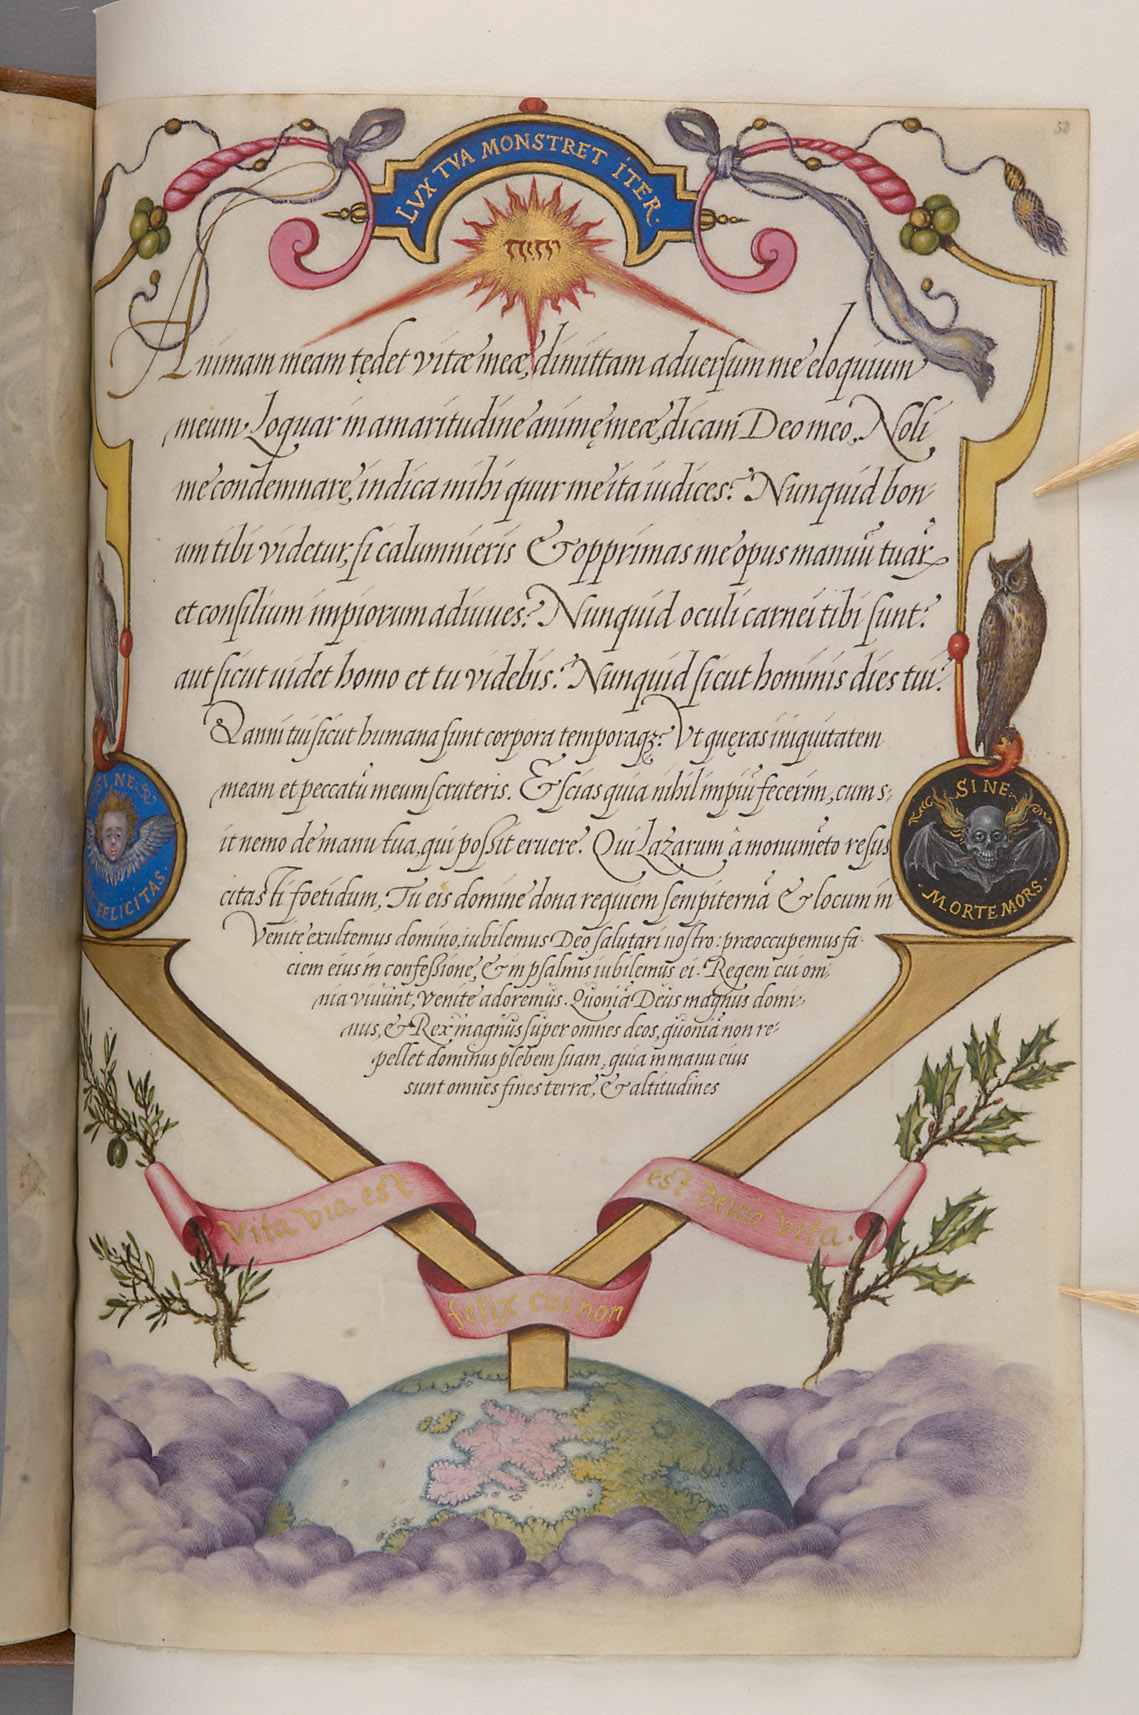 58
LVX TVA MONSTRET ITER.
יהוה
Animam meam tędet vitæ meæ, dimittam adversum me eloquium
meum. Loquar in amaritudine animę meæ, dicam Deo meo, Noli
me condemnare, indica mihi quur me ita iudices? Nunquid bon-
um tibi videtur, si calumnieris & opprimas me opus manuũ tuaɽ
et consilium impiorum adiuues? Nunquid oculi carnei tibi sunt?
aut sicut uidet homo et tu videbis? Nunquid sicut hominis dies tui?
Q anni tui sicut humana sunt corpora temporaqꝫ? Vt quęras iniquitatem
meam et peccatũ meum scruteris. Et scias quia nihil impiũ fecerim, cum s-
it nemo de manu tua, qui possit eruere. Qui Lazarum â monumẽto resus
citasti foetidum, Tu eis domine dona requiem sempiternã & locum in
Venite exultemus domino, iubilemus Deo salutari nostro: præoccupemus fa-
ciem eius in confessione, & in psalmis iubilemus ei. Regem cui om-
nia viuunt, venite adoremus. Quoniã Deus magnus domi-
nus, & Rex magnus super omnes deos, quoniã non re-
pellet dominus plebem suam, quia in manu eius
sunt omnes fines terræ, & altitudines
SINE
FELICITAS.
SINE
MORTE MORS.
Vita via est
est bruta vita.
felix cui non